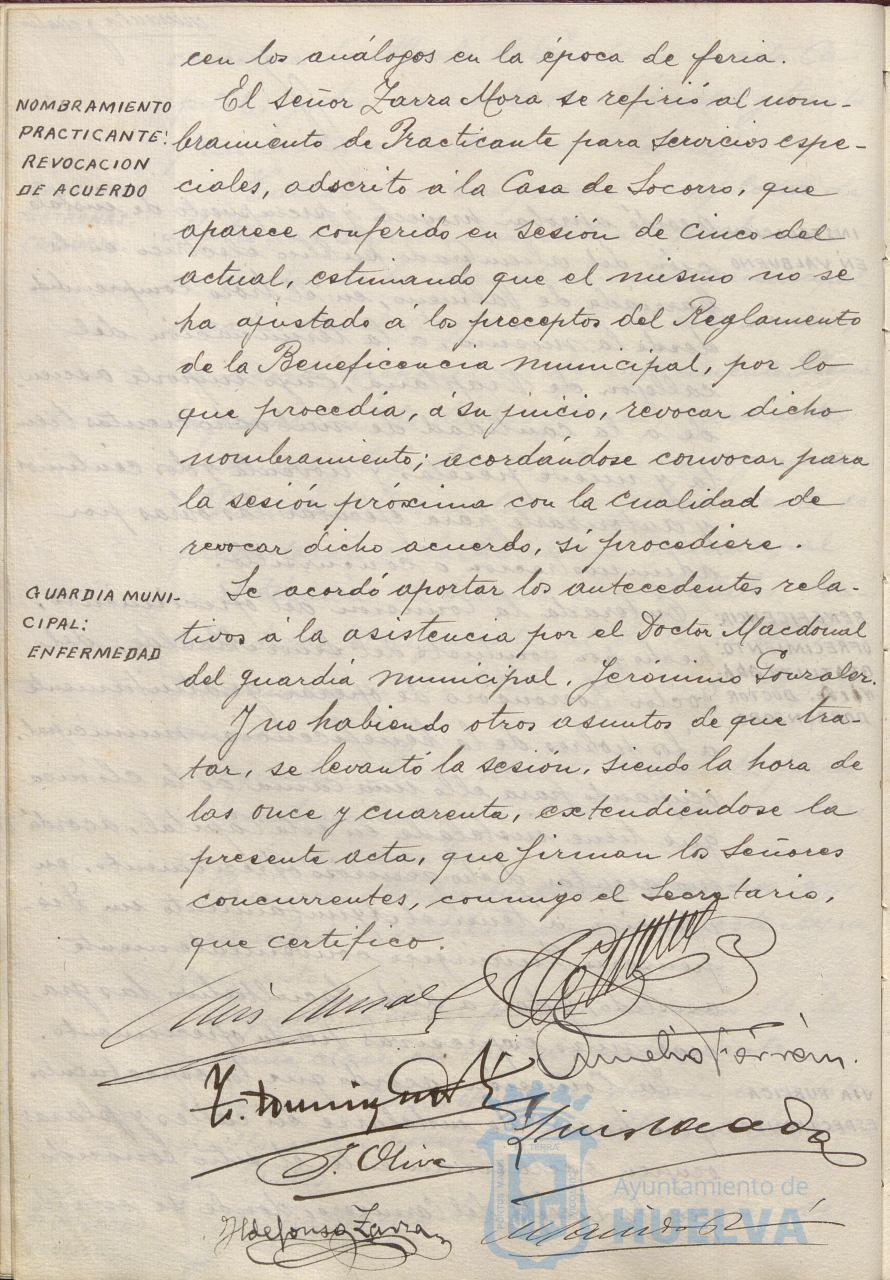 cen los análogos en la época de feria.
NOMBRAMIENTO
PRACTICANTE:
REVOCACION
DE ACUERDO
El señor Zarra Mora se refirió al nom-
bramiento de Practicante para servicios espe-
ciales, adscrito á la Casa de Socorro, que
aparece conferido en sesión de cinco del
actual, estimando que el mismo no se
ha ajustado á los preceptos del Reglamento
de la Beneficencia municipal, por lo
que procedía, á su juicio, revocar dicho
nombramiento; acordándose convocar para
la sesión próxima con la cualidad de
revocar dicho acuerdo, si procediere.
GUARDIA MUNI-
CIPAL:
ENFERMEDAD
Se acordó aportar los antecedentes rela-
tivos á la asistencia por el Doctor Macdonal
del guardia municipal, Jerónimo Gonzalez.
Y no habiendo otros asuntos de que tra-
tar, se levantó la sesión, siendo la hora de
las once y cuarenta, extendiéndose la
presente acta, que firman los Señores
concurrentes, conmigo el Secretario,
que certifico.
Quismada
J. Oliva
Ildefonso Zarra
Ayuntamiento de
HUELVA